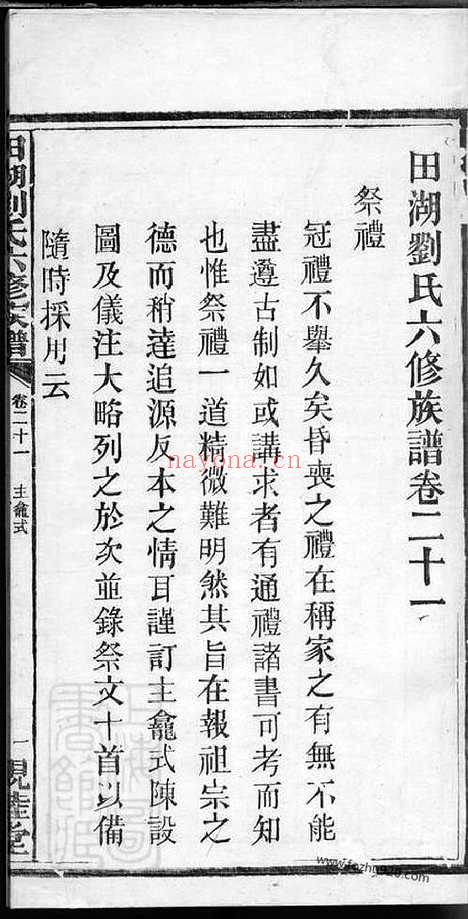 田湖劉氏六修族譜卷二十一
祭禮
冠禮不舉久矣昏喪之禮在稱家之有無不能
盡遵古制如或講求者有通禮諸書可考而知
也惟祭禮一道精微難明然其旨在報祖宗之
德而稍達追源反本之情耳謹訂主龕式陳設
圖及儀注大略列之於次並錄祭文十首以備
隨時採用云
田湖劉氏六修族譜
卷二十一
主龕式
一
親睦堂
nayona.cn
www.fozhu920.com